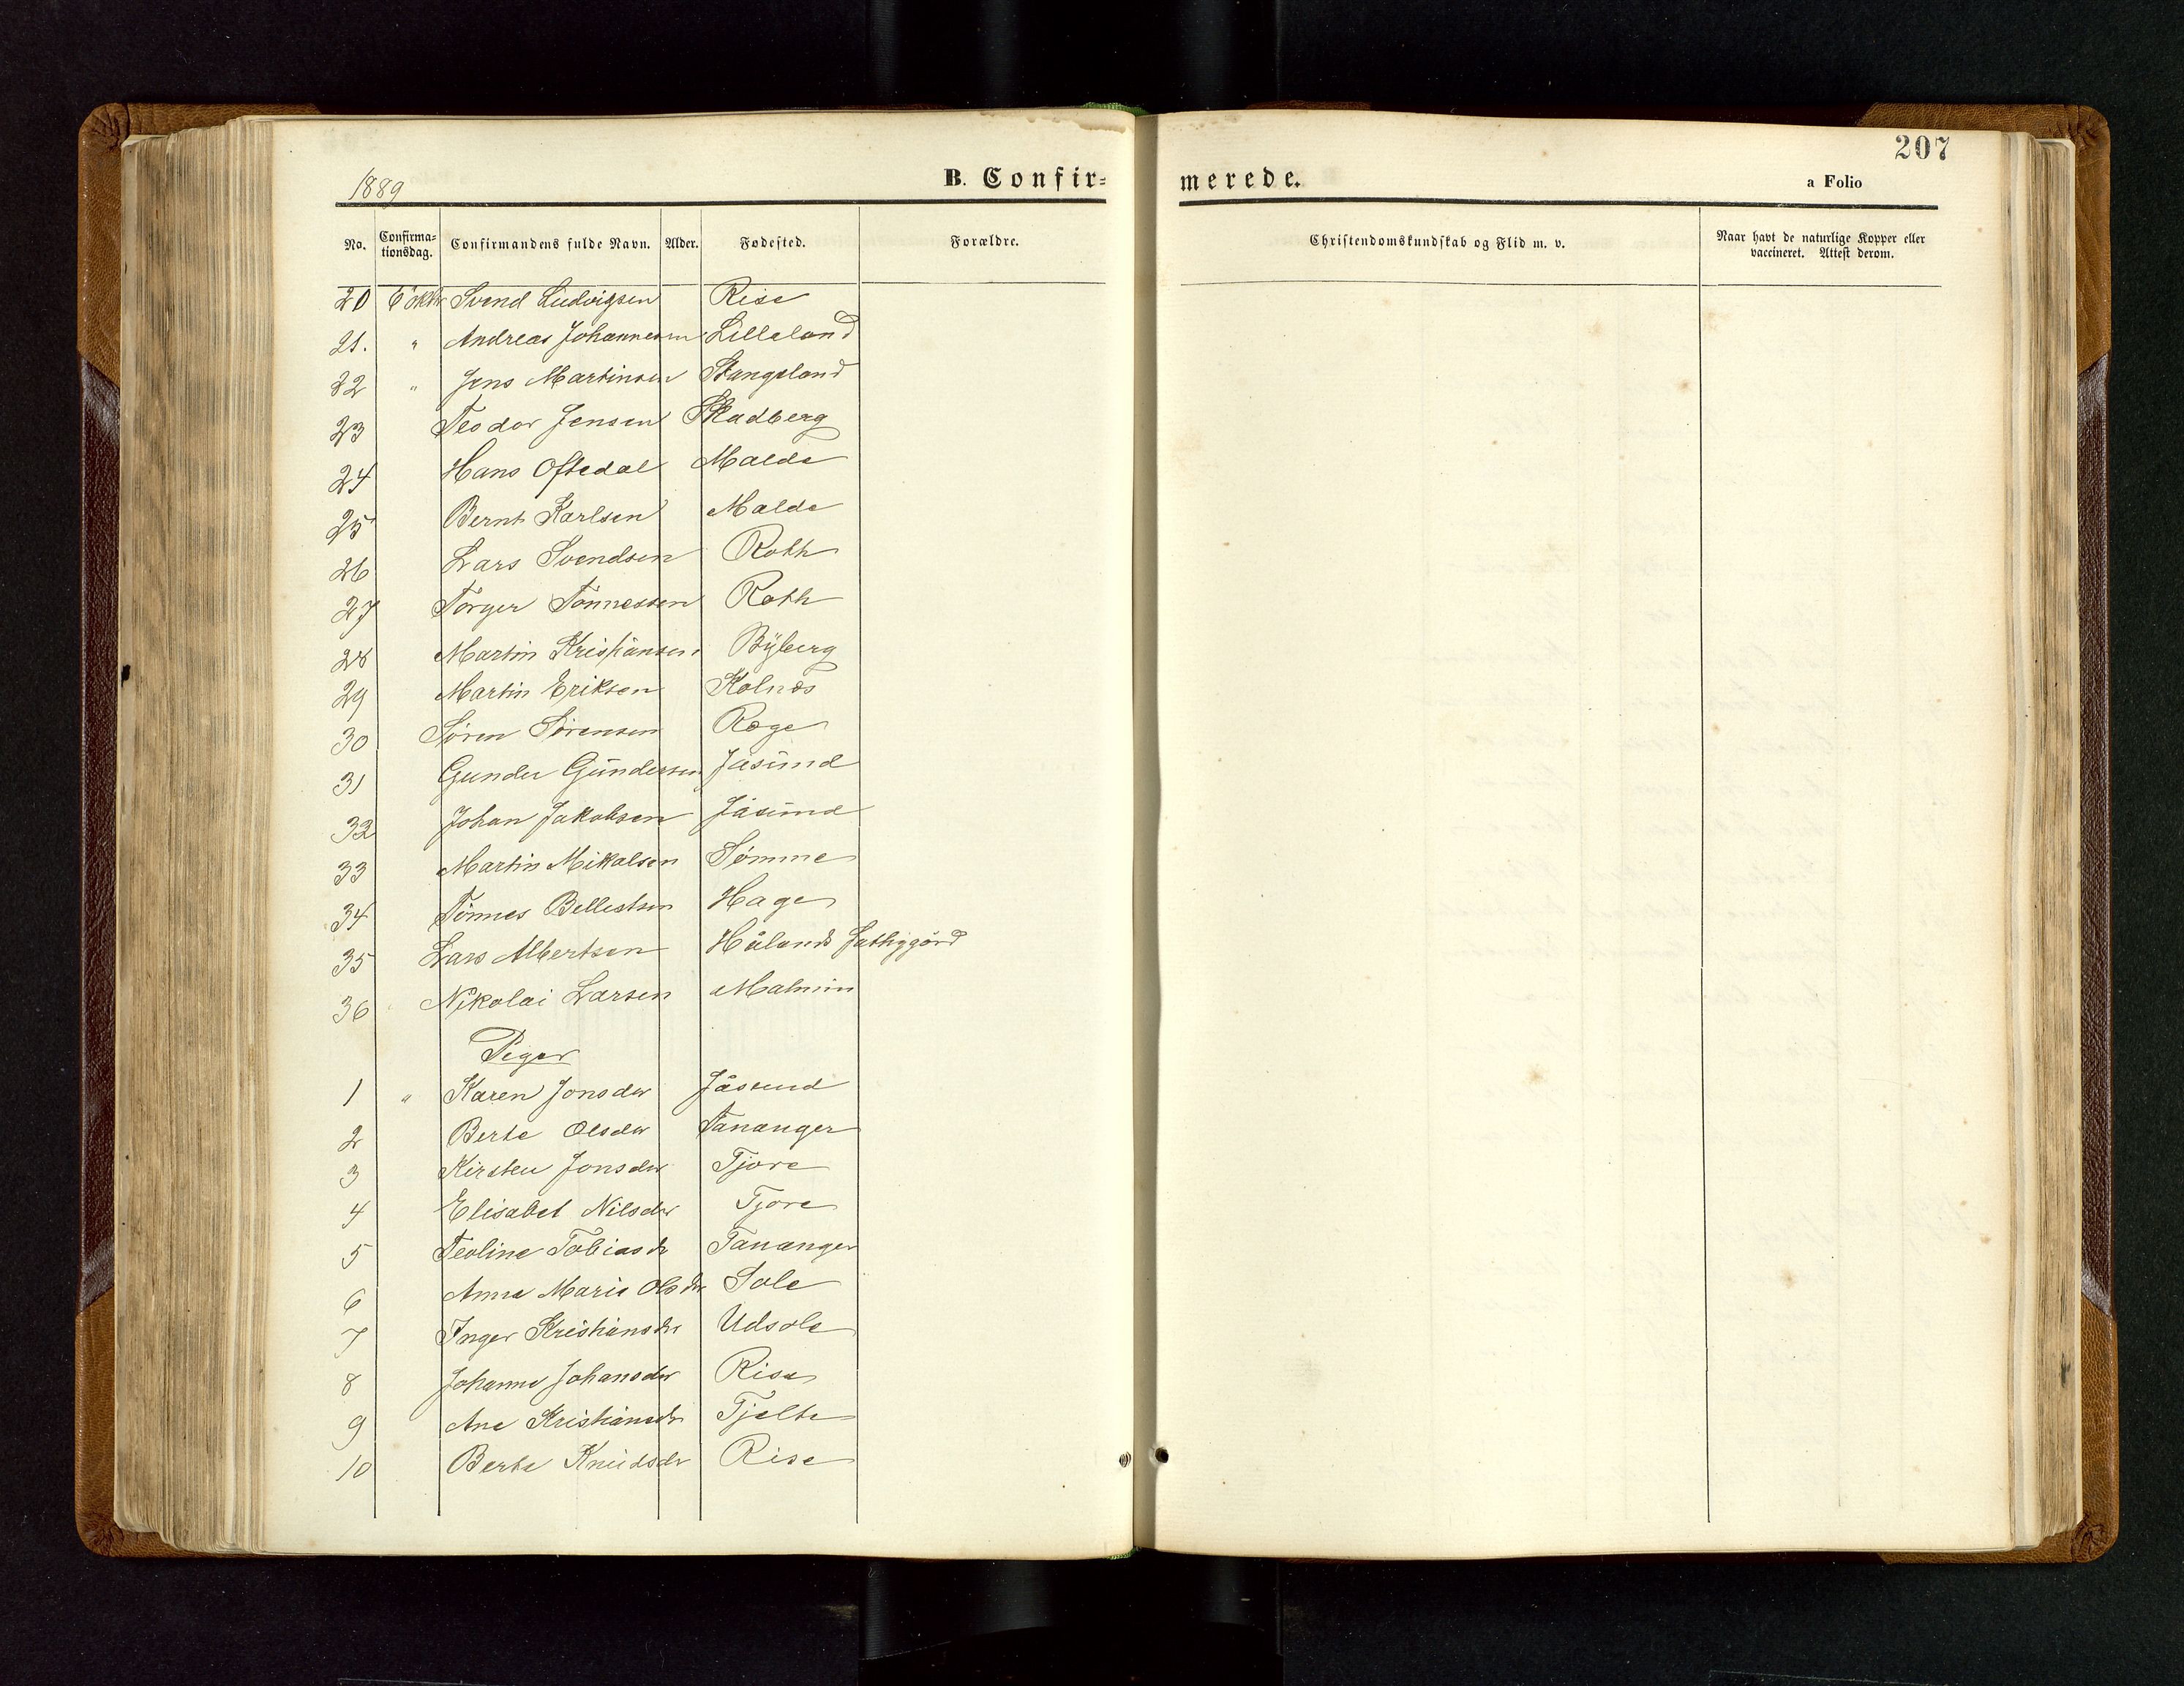 207
1889
B. Confir=
merede.
a Folio
No. Confirma=tionsdag. Confirmandens fulde Navn. Alder. Fødested. Forældre. Christendomskundskab og Flid m. v. Naar havt de naturlige Kopper eller vaccineret. Attest derom.
20 6 oktbr Svend Ludvigsen Rise
21. " Andreas Johannesen Lilleland
22 " Jens Martinsen Stangeland
23 Teodor Jensen Skadberg
24 Hans Oftedal Malde
25 Bernt Karlsen Malde
26 Lars Svendsen Roth
27 Törger Tönnessen Roth
28 Martin Kristiansen Byberg
29 Martin Eriksen Kolnæs
30 Sören Sörensen Ræge
31 Gunder Gundersen Jåsund
32 Johan Jakobsen Jåsund
33 Martin Mikalsen Sömme
34 Tönnes Bellestsen Haga
35 Lars Albertsen Hålands fattiggård
36 Nikolai Larsen Malmim
Piger
1 " Karen Jonsdtr Jåsund
2 Berte Olsdtr Tananger
3 Kirsten Jonsdtr Tjora
4 Elisabet Nilsdtr Tjora
5 Teoline Tobiasdr Tananger
6 Anna Marie Olsdtr Sole
7 Inger Kristiansdr Udsola
8 Johanne Johansdtr Risa
9 Ane Kristiansdr Tjelta
10 Berta Knudsdr Risa